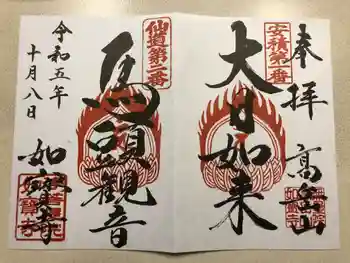 奉拝
安積第一番
大日如来
高岳山
仙道第二番
馬頭観音
令和五年
十月八日
如寳寺